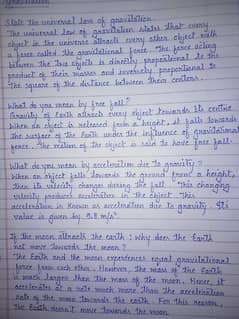 Gravitation
State the universal law of gravitation.
The universal law of gravitation states that every
object in the universe attracts every other object with
a force called the gravitational force. The force acting
between the two objects is directly proportional to the
product of their masses and inversely proportional to
the square of the distance between their centers.
What do you mean by free fall?
Gravity of Earth attracts every object towards its centre.
When an object is released from a height, it falls towards
the surface of the Earth under the influence of gravitational
force. The motion of the object is said to have free fall.
What do you mean by acceleration due to gravity?
When an object falls towards the ground from a height,
then its velocity changes during the fall. This changing
velocity produces acceleration in the object. This
acceleration is known as acceleration due to gravity. Its
value is given by 9.8 m/s².
If the moon attracts the earth, why does the Earth
not move towards the moon?
The Earth and the moon experiences equal gravitational
force from each other. However, the mass of the Earth
is much larger than the mass of the moon. Hence, it
accelerates at a rate much more than the acceleration
rate of the moon towards the earth. For this reason,
the Earth doesn't move towards the moon.